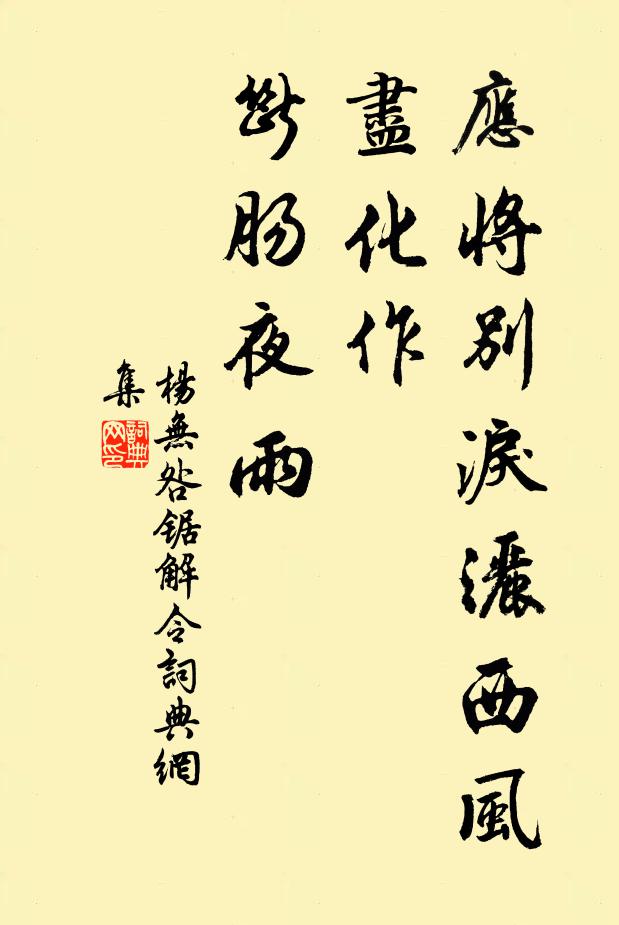 應將別淚灑西風
盡化作
斷肠夜雨
楊無咎鋸解令詞典網
集
詞典
网印